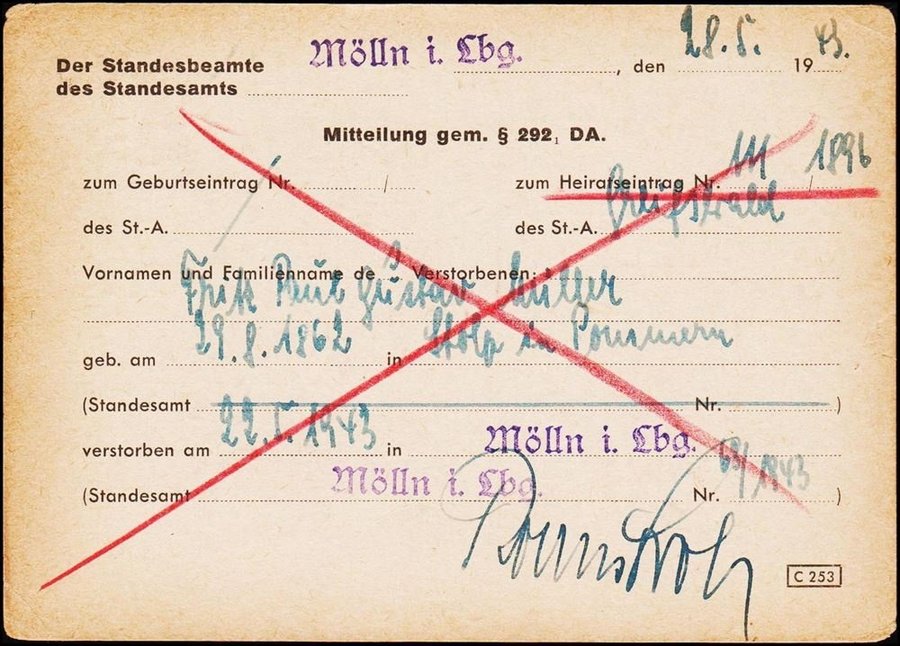 Der Standesbeamte Mölln i. Lbg. , den 28.5. 1943.
des Standesamts
Mitteilung gem. § 292, DA.
zum Geburtseintrag Nr. / zum Heiratseintrag Nr. 111 / 1896
des St.-A. des St.-A. Greifswald
Vornamen und Familienname des Verstorbenen:
Fritz Paul Gustav Müller
geb. am 29.8.1862 in Stolp in Pommern
(Standesamt Nr. )
verstorben am 22.5.1943 in Mölln i. Lbg.
(Standesamt Mölln i. Lbg. Nr. /1943 )
C 253